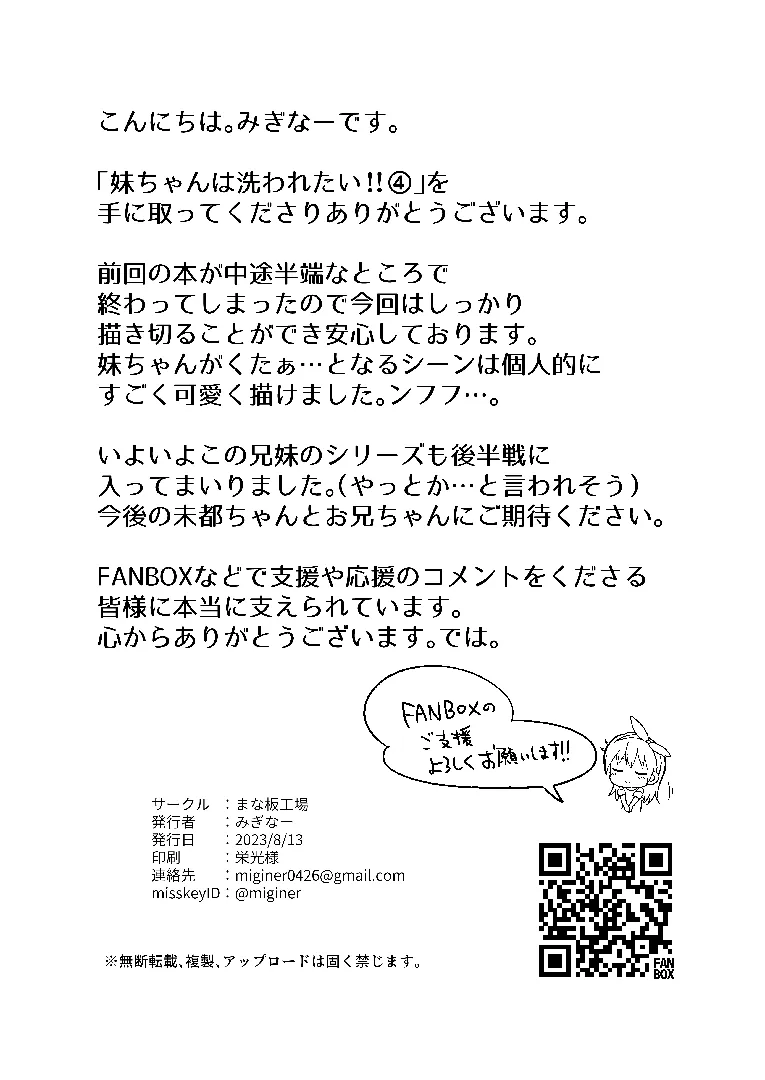 こんにちは。みぎなーです。
「妹ちゃんは洗われたい!!④」を
手に取ってくださりありがとうございます。
前回の本が中途半端なところで
終わってしまったので今回はしっかり
描き切ることができ安心しております。
妹ちゃんがくたぁ…となるシーンは個人的に
すごく可愛く描けました。ンフフ…。
いよいよこの兄妹のシリーズも後半戦に
入ってまいりました。(やっとか…と言われそう)
今後の未都ちゃんとお兄ちゃんにご期待ください。
FANBOXなどで支援や応援のコメントをくださる
皆様に本当に支えられています。
心からありがとうございます。では。
FANBOXの
ご支援
よろしくお願いします!!
サークル ：まな板工場
発行者 ：みぎなー
発行日 ：2023/8/13
印刷 ：栄光様
連絡先 ：miginer0426@gmail.com
misskeyID：@miginer
※無断転載、複製、アップロードは固く禁じます。
FAN
BOX